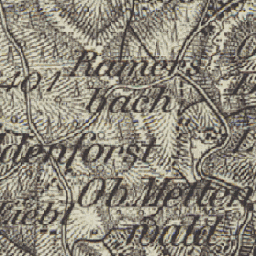 Ramers
401
bach
denforst
Ob. Metten
wald